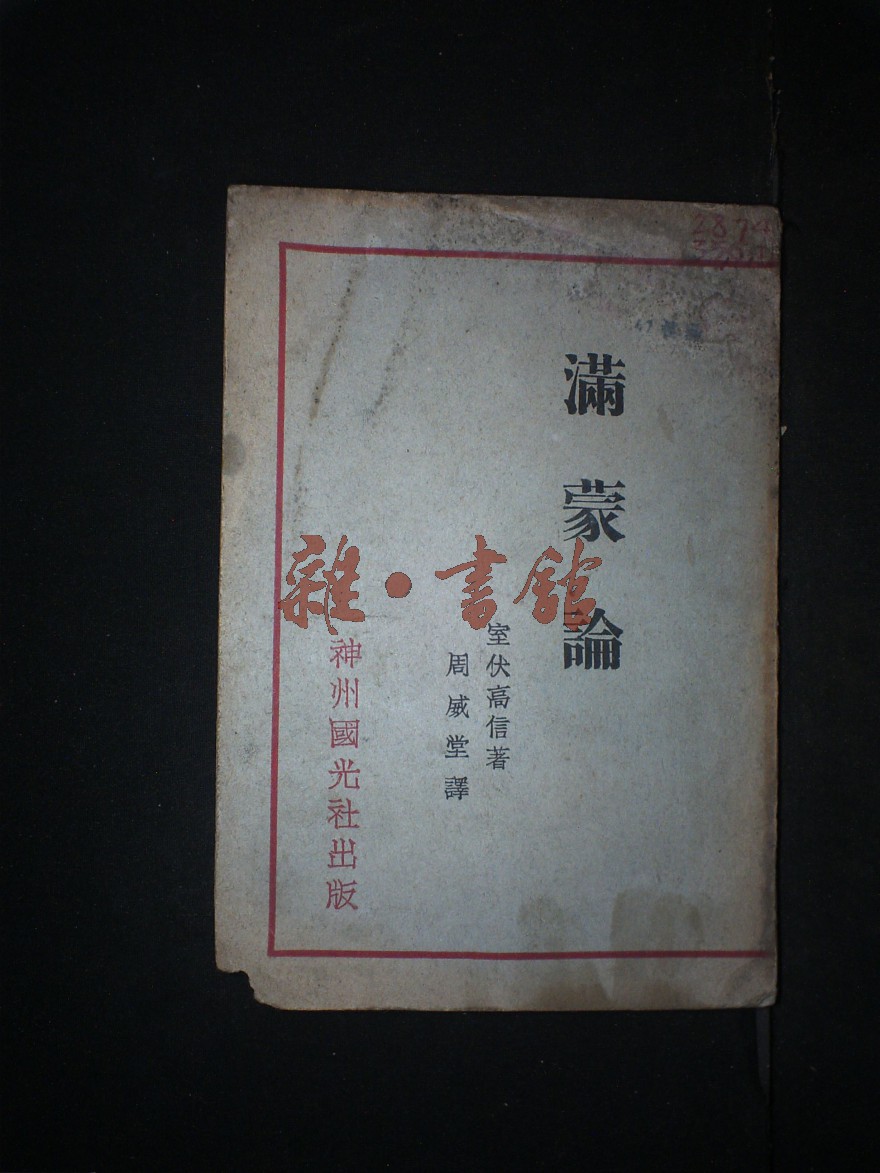 滿蒙論
室伏高信著
周威堂譯
神州國光社出版
雜·書館
2874